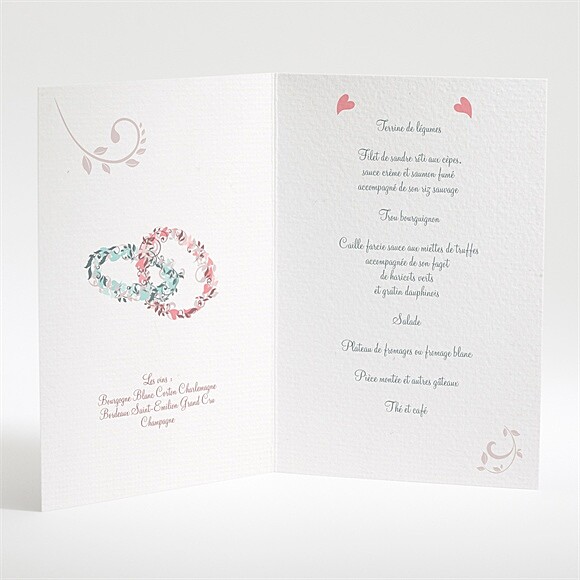 Les vins :
Bourgogne Blanc Corton Charlemagne
Bordeaux Saint-Emilion Grand Cru
Champagne
Terrine de légumes
Filet de sandre rôti aux cèpes,
sauce crème et saumon fumé
accompagné de son riz sauvage
Trou bourguignon
Caille farcie sauce aux miettes de truffes
accompagnée de son fagot
de haricots verts
et gratin dauphinois
Salade
Plateau de fromages ou fromage blanc
Pièce montée et autres gâteaux
Thé et café